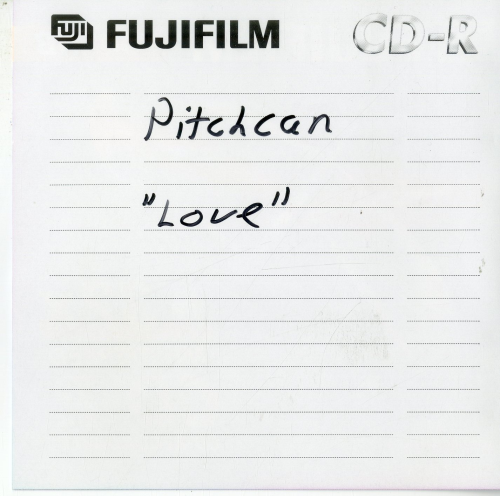 FUJI FUJIFILM CD-R
Pitchcan
"Love"